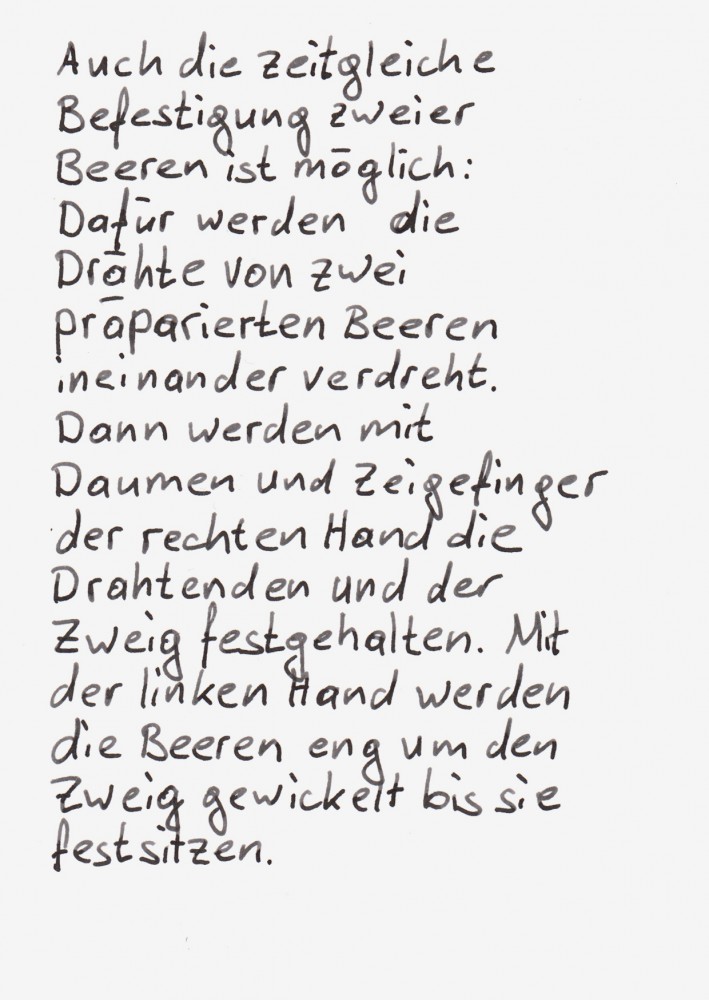 Auch die zeitgleiche
Befestigung zweier
Beeren ist möglich:
Dafür werden die
Drähte von zwei
präparierten Beeren
ineinander verdreht.
Dann werden mit
Daumen und Zeigefinger
der rechten Hand die
Drahtenden und der
Zweig festgehalten. Mit
der linken Hand werden
die Beeren eng um den
Zweig gewickelt bis sie
festsitzen.